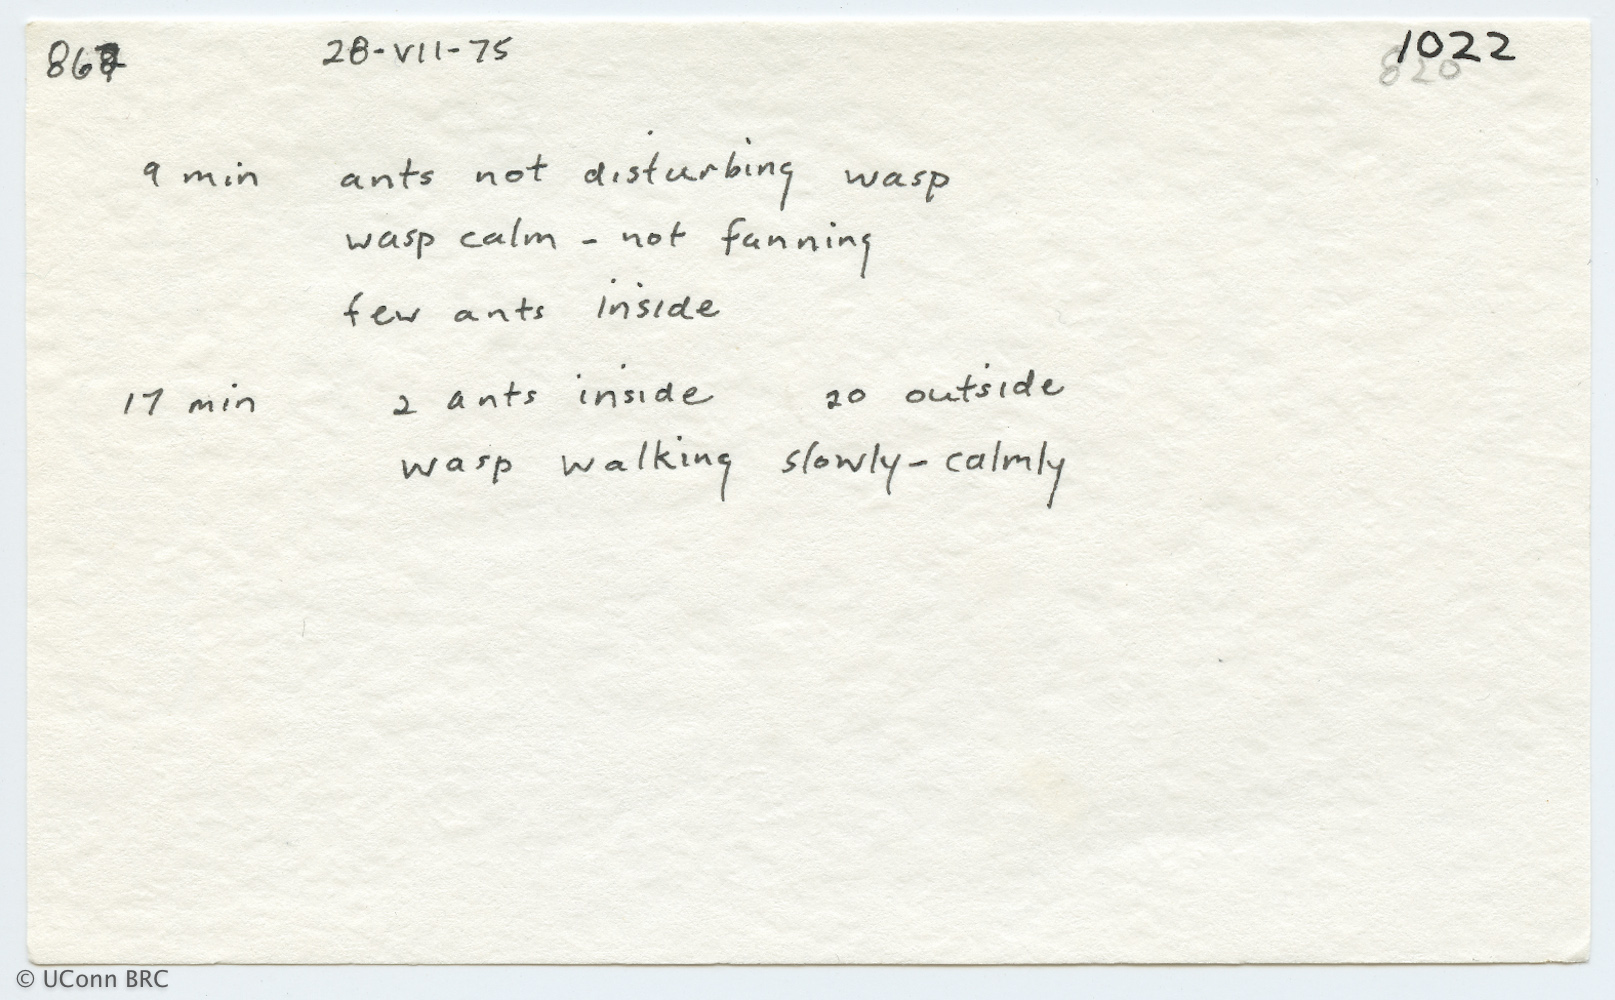 28-VII-75 1022
820
9 min ants not disturbing wasp
wasp calm - not fanning
few ants inside
17 min 2 ants inside 20 outside
wasp walking slowly - calmly
© UConn BRC